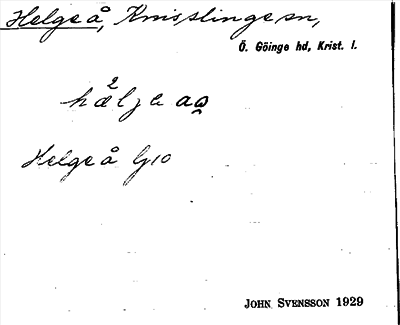 Helge å, Knisslinge sn,
Ö. Göinge hd, Krist. l.
Helge å G10
JOHN SVENSSON 1929